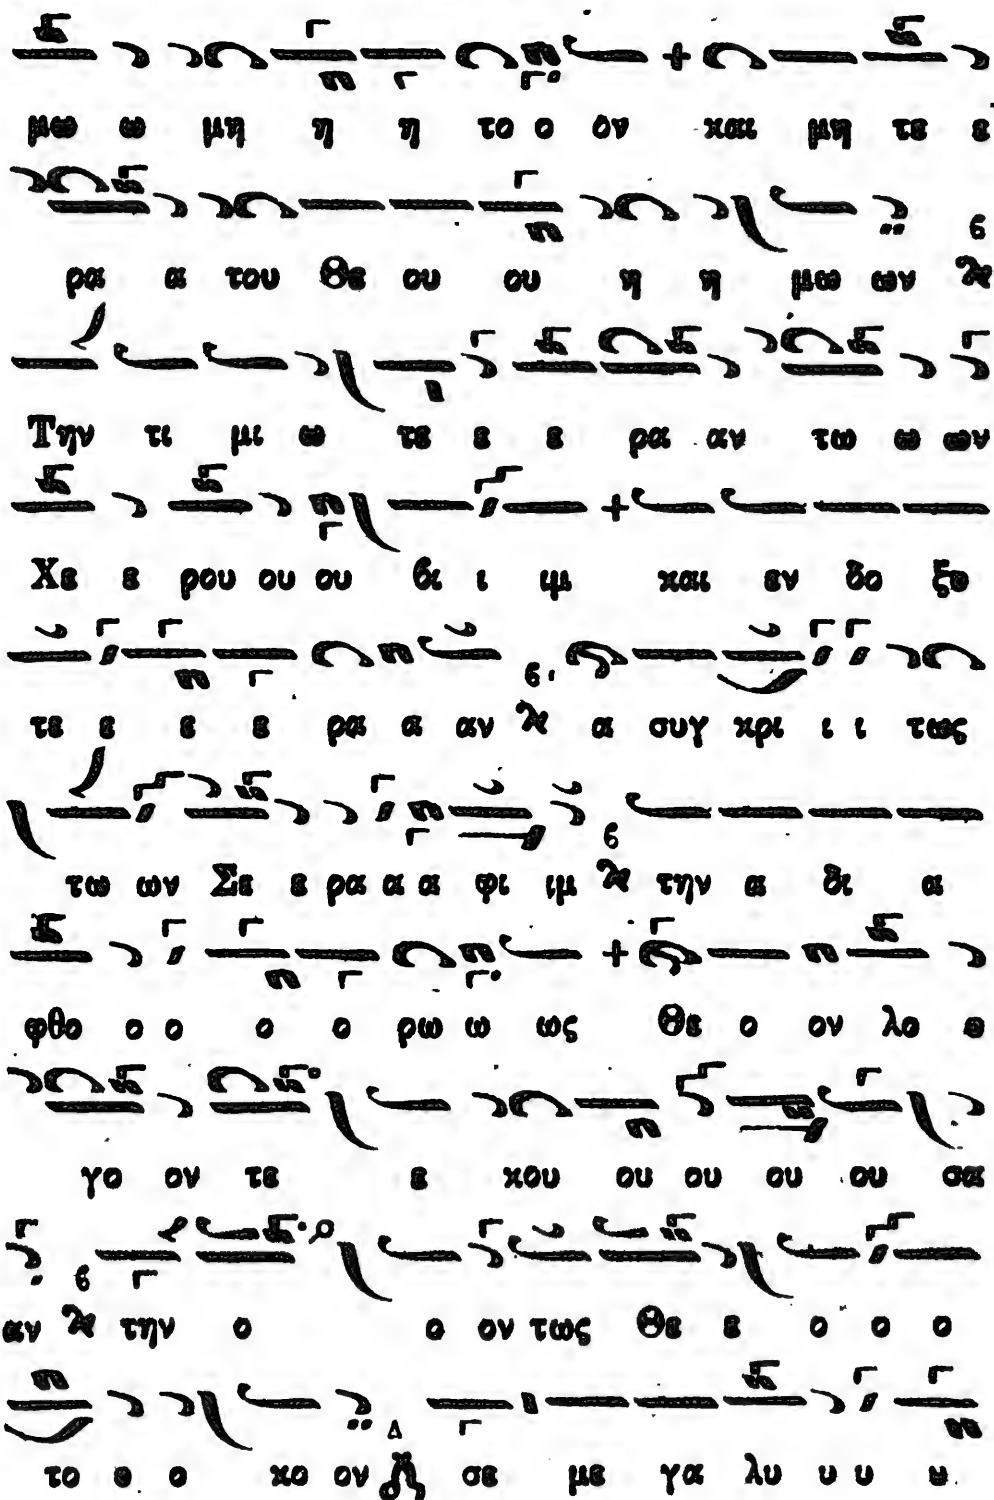 μω ω μη η η το ο ον και μη τε ε
ρα α του Θε ου ου η η μω ων
Την τι μι ω τε ε ε ρα αν τω ω ων
Χε ε ρου ου ου βι ι ιμ και εν δο ξο
τε ε ε ε ρα α αν α συγ κρι ι ι τως
τω ων Σε ε ρα α α φι ιμ την α δι α
φθο ο ο ο ο ρω ω ως Θε ο ον λο ο
γο ον τε ε κου ου ου ου ου σα
αν την ο ο ον τως Θε ε ο ο ο
το ο ο κο ον σε με γα λυ υ υ υ